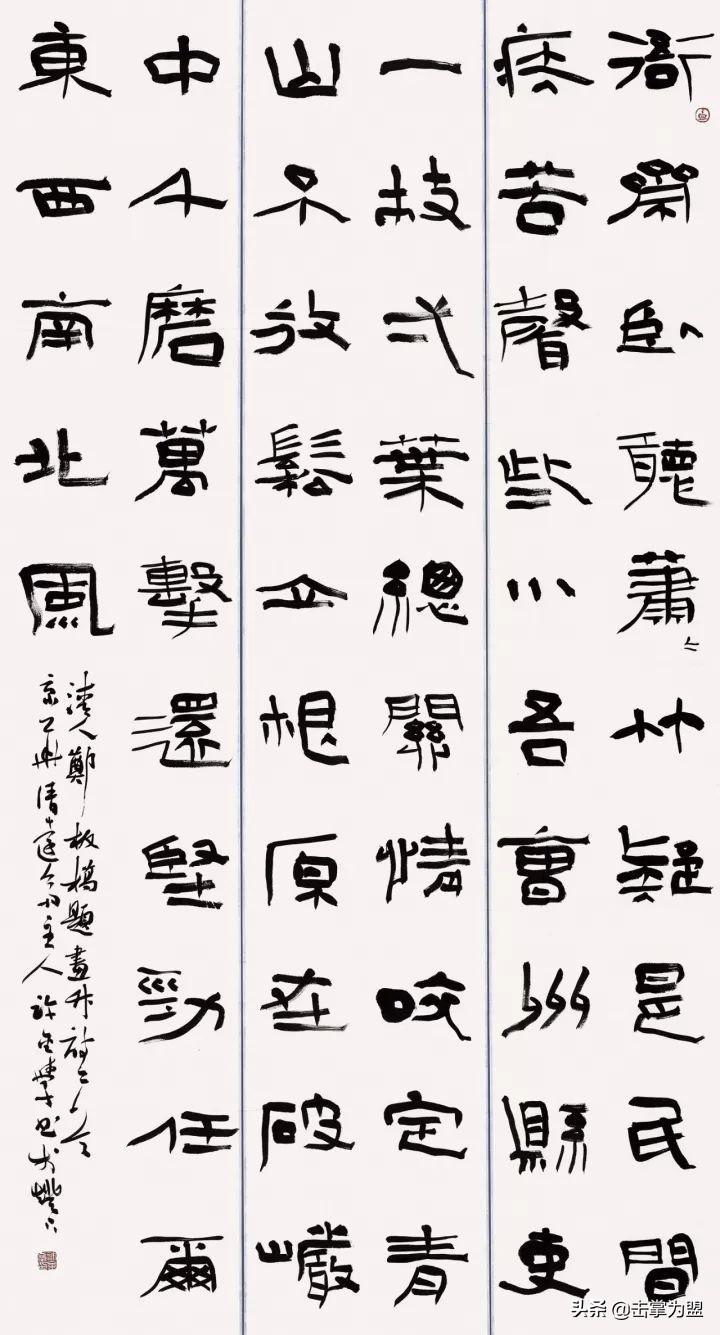 衙齋卧聽蕭々竹疑是民間
疾苦聲些小吾曹州縣吏
一枝弌葉總關情咬定青
山不放鬆立根原在破巖
中千磨萬擊還堅勁任爾
東西南北風
清人鄭板橋題畫竹詩二首
主人許
头条 @击掌为盟